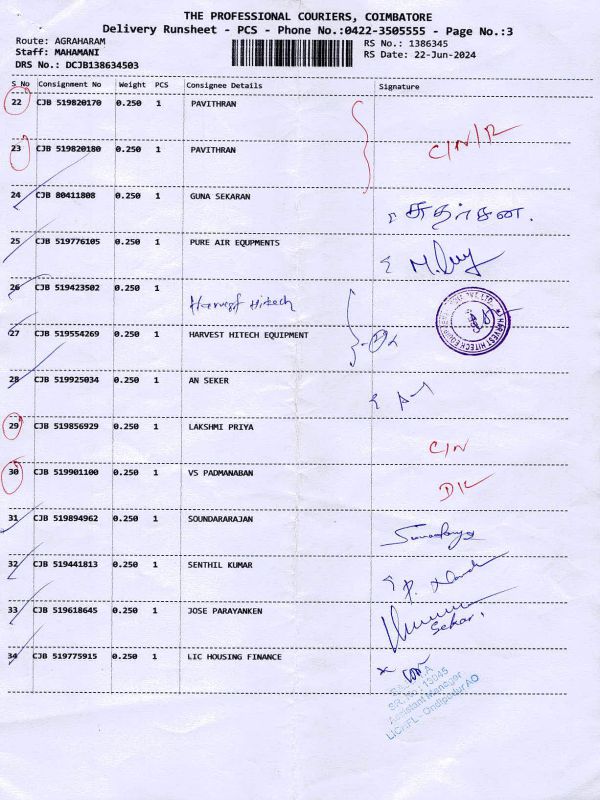 THE PROFESSIONAL COURIERS, COIMBATORE
Delivery Runsheet - PCS - Phone No.:0422-3505555 - Page No.:3
Route: AGRAHARAM
RS No.: 1386345
Staff: MAHAMANI
RS Date: 22-Jun-2024
DRS No.: DCJB138634503
S No Consignment No Weight PCS Consignee Details Signature
22 CJB 519820170 0.250 1 PAVITHRAN
23 CJB 519820180 0.250 1 PAVITHRAN C/N/R
24 CJB 80411808 0.250 1 GUNA SEKARAN சுதர்சன.
25 CJB 519776105 0.250 1 PURE AIR EQUPMENTS
26 CJB 519423502 0.250 1 Harvest Hitech
27 CJB 519554269 0.250 1 HARVEST HITECH EQUIPMENT
HARVEST HITECH EQUIPMENT PVT LTD
28 CJB 519925034 0.250 1 AN SEKER
29 CJB 519856929 0.250 1 LAKSHMI PRIYA C/N
30 CJB 519901100 0.250 1 VS PADMANABAN D/L
31 CJB 519894962 0.250 1 SOUNDARARAJAN
32 CJB 519441813 0.250 1 SENTHIL KUMAR
33 CJB 519618645 0.250 1 JOSE PARAYANKEN Sekar.
34 CJB 519775915 0.250 1 LIC HOUSING FINANCE
SR. No: 13045
Assistant Manager
LICHFL - Ondipudur AO